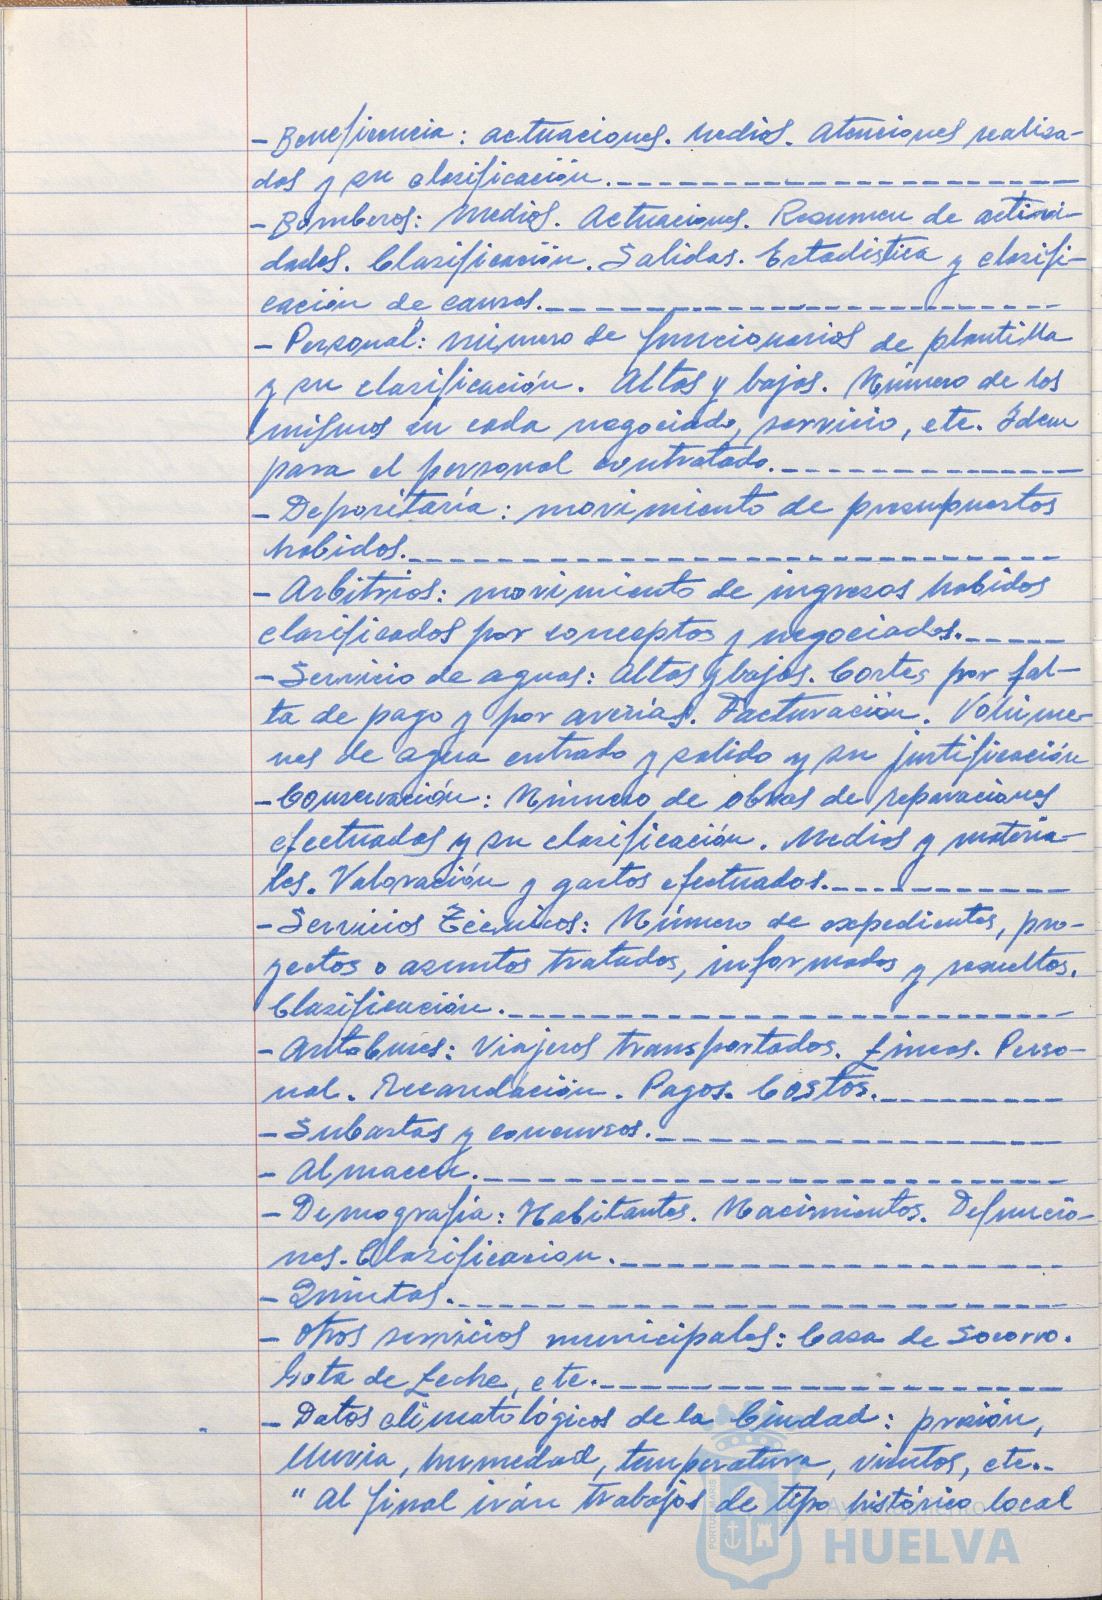 - Beneficencia: actuaciones. Medios. Atenciones realiza-
das y su clasificación.
- Bomberos: Medios. Actuaciones. Resumen de activi-
dades. Clasificación. Salidas. Estadística y clasifi-
cación de causas.
- Personal: número de funcionarios de plantilla
y su clasificación. Altas y bajas. Número de los
mismos en cada negociado, servicio, etc. Idem
para el personal contratado.
- Depositaría: movimiento de presupuestos
habidos.
- Arbitrios: movimiento de ingresos habidos
clasificados por conceptos y negociados.
- Servicio de aguas: Altas y bajas. Cortes por fal-
ta de pago y por averias. Facturación. Volúme-
nes de agua entrado y salido y su justificación
- Conservación: Número de obras de reparaciones
efectuadas y su clasificación. Medios y materia-
les. Valoración y gastos efectuados.
- Servicios Técnicos: Número de expedientes, pro-
yectos o asuntos tratados, informados y resueltos.
Clasificación.
- Autobuses: Viajeros transportados. Líneas. Perso-
nal. Recaudación. Pagos. Costos.
- Subastas y concursos.
- Almacen.
- Demografía: Habitantes. Nacimientos. Defuncio-
nes. Clasificacion.
- Quintas.
- Otros servicios municipales: Casa de Socorro.
Gota de Leche, etc.
- Datos climatológicos de la Ciudad: presión,
lluvia, humedad, temperatura, vientos, etc.
"Al final irán trabajos de tipo histórico local
Ayuntamiento de
HUELVA